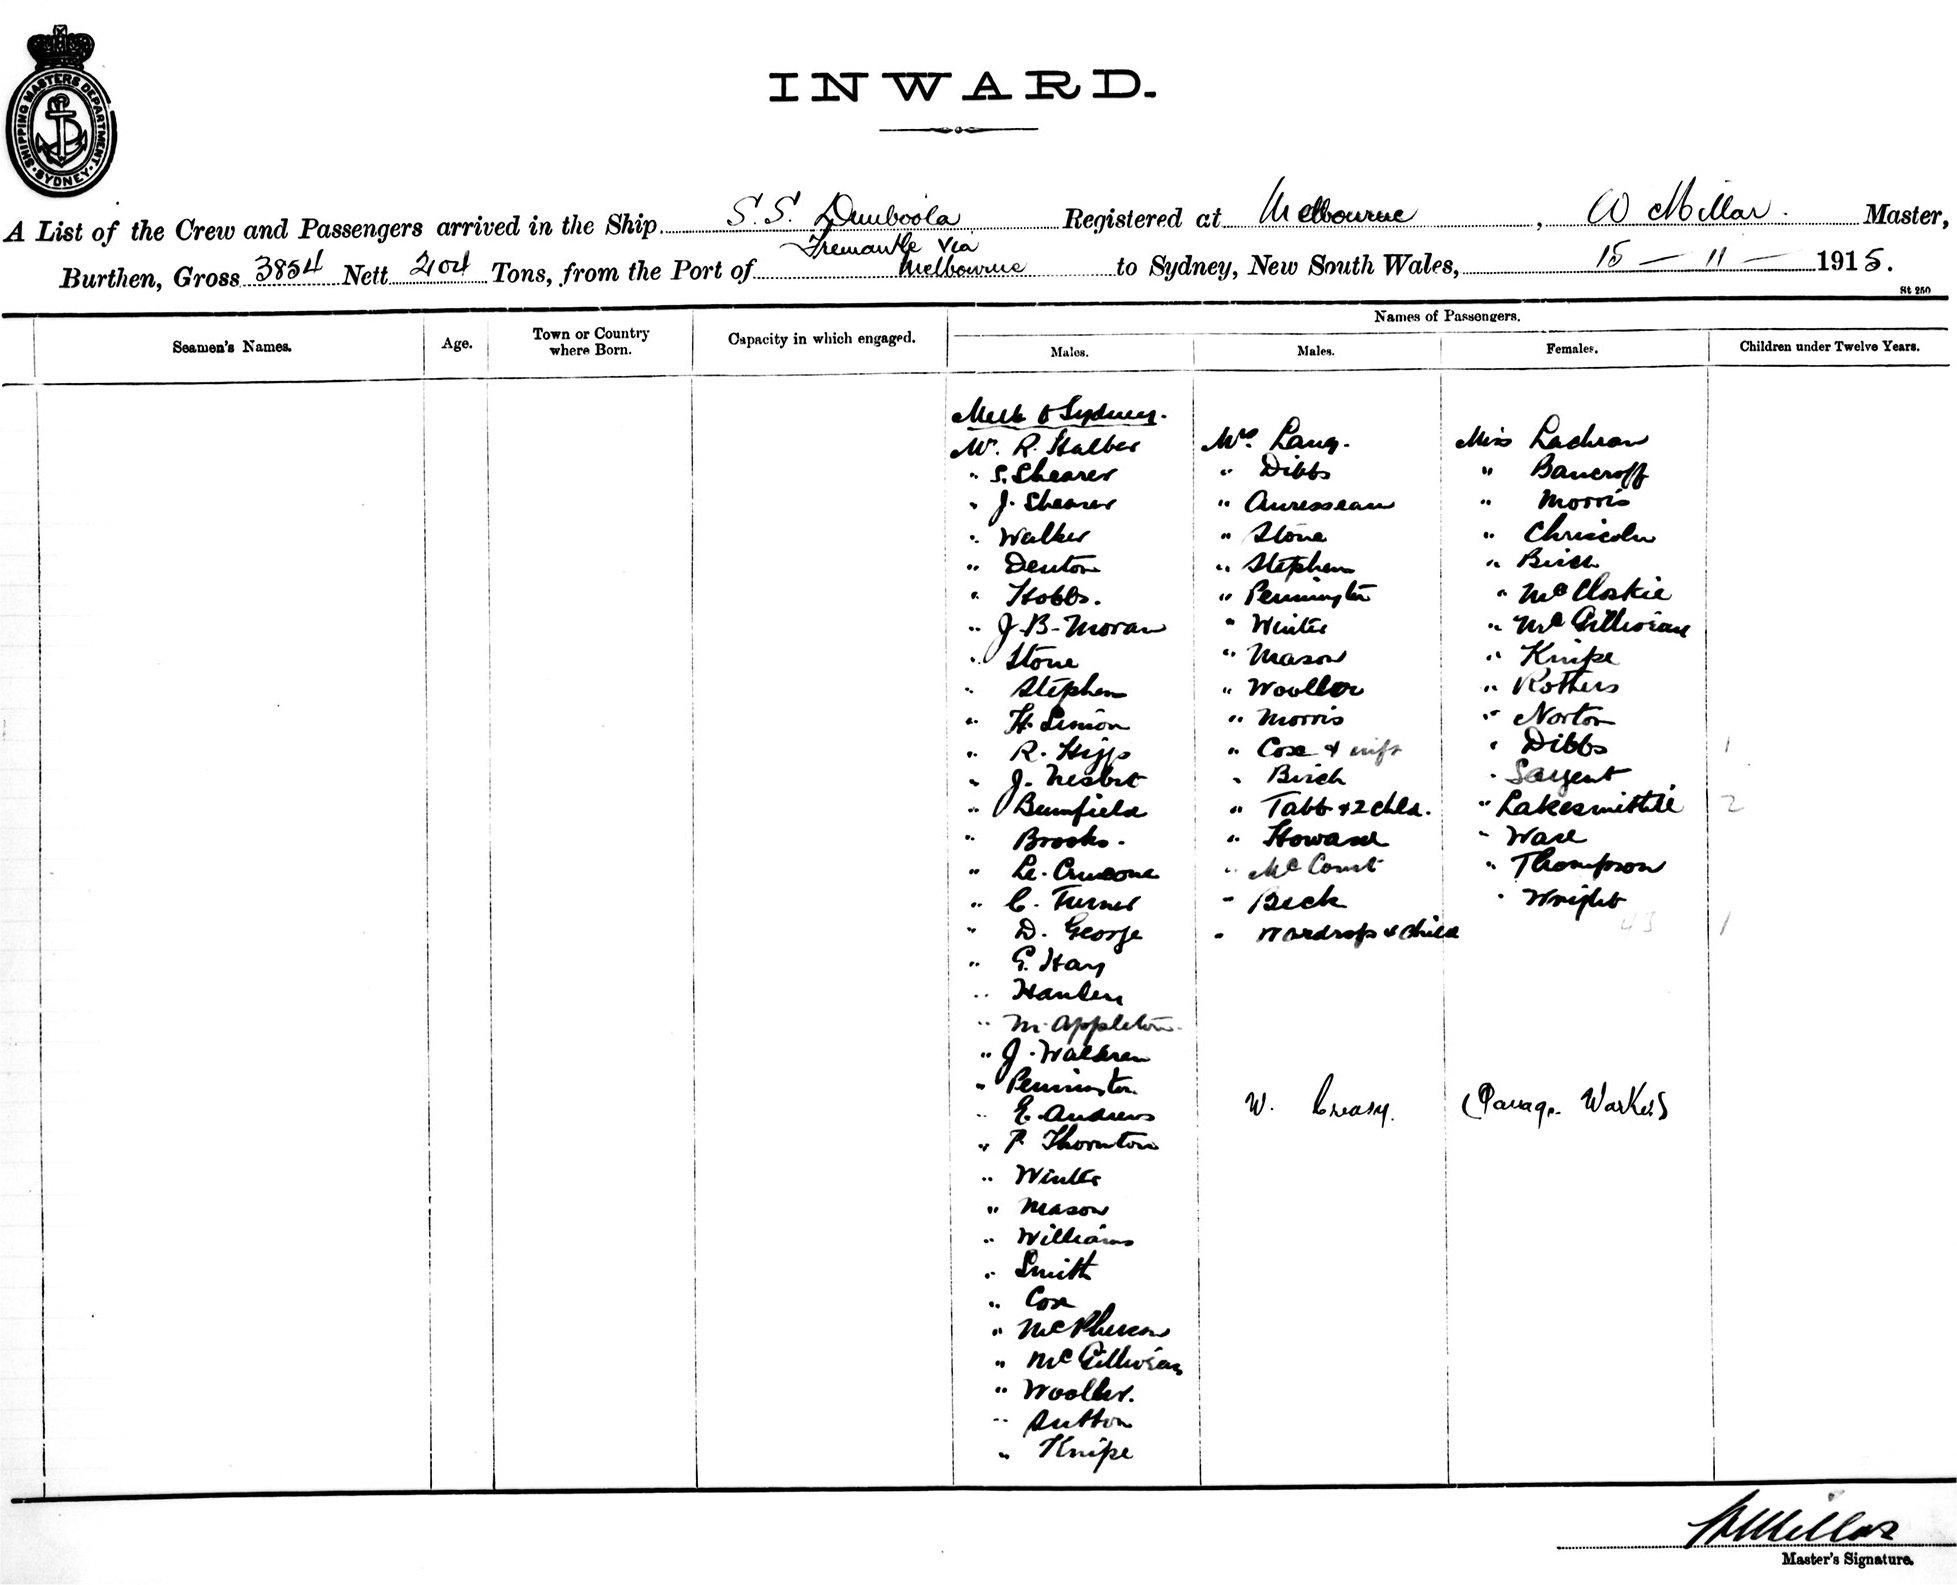 SHIPPING MASTERS DEPARTMENT
SYDNEY
INWARD.
A List of the Crew and Passengers arrived in the Ship S.S. Dimboola Registered at Melbourne, W Millar. Master,
Fremantle Via
Burthen, Gross 3854 Nett Tons, from the Port of Melbourne to Sydney, New South Wales, 15 — 11 — 1915.
St 250
Names of Passengers.
Seamen's Names.
Age.
Town or Country
where Born.
Capacity in which engaged.
Males.
Males.
Females.
Children under Twelve Years.
Melb to Sydney.
Mr. R. Halber
" S. Shearer
" J. Shearer
" Walker
" Denton
" Hobbs.
" J. B. Moran
" Stone
" Stephen
" H. Simon
" R. Hipp
" J. Nesbit
" Bumfield
" Brooks.
" C. Turner
" D. George
" G. Hay
" Hanlen
" M. Appleton
" J. Waldren
" Pennington
" E. Andrews
" P. Thornton
" Winter
" Mason
" Williams
" Smith
" Cox
" McPherson
" McGillivray
" Wooller.
" Sutton
" Knipe
Mrs. Lang.
" Dibbs
" Stone
" Stephen
" Pennington
" Winter
" Mason
" Wooller
" Morris
" Cox & inft
" Birch
" Tabb & 2 chld.
" Howard
" McCourt
" Beck
" Wardrop & child
W. Creasy.
Miss Lachran
" Bancroft
" Morris
" Birch
" McCloskie
" McGillivray
" Knipe
" Rothers
" Norton
" Dibbs
" Sargent
" Ware
" Thompson
" Wright
43
(Passage Workers)
1
2
1
W Millar
Master's Signature.